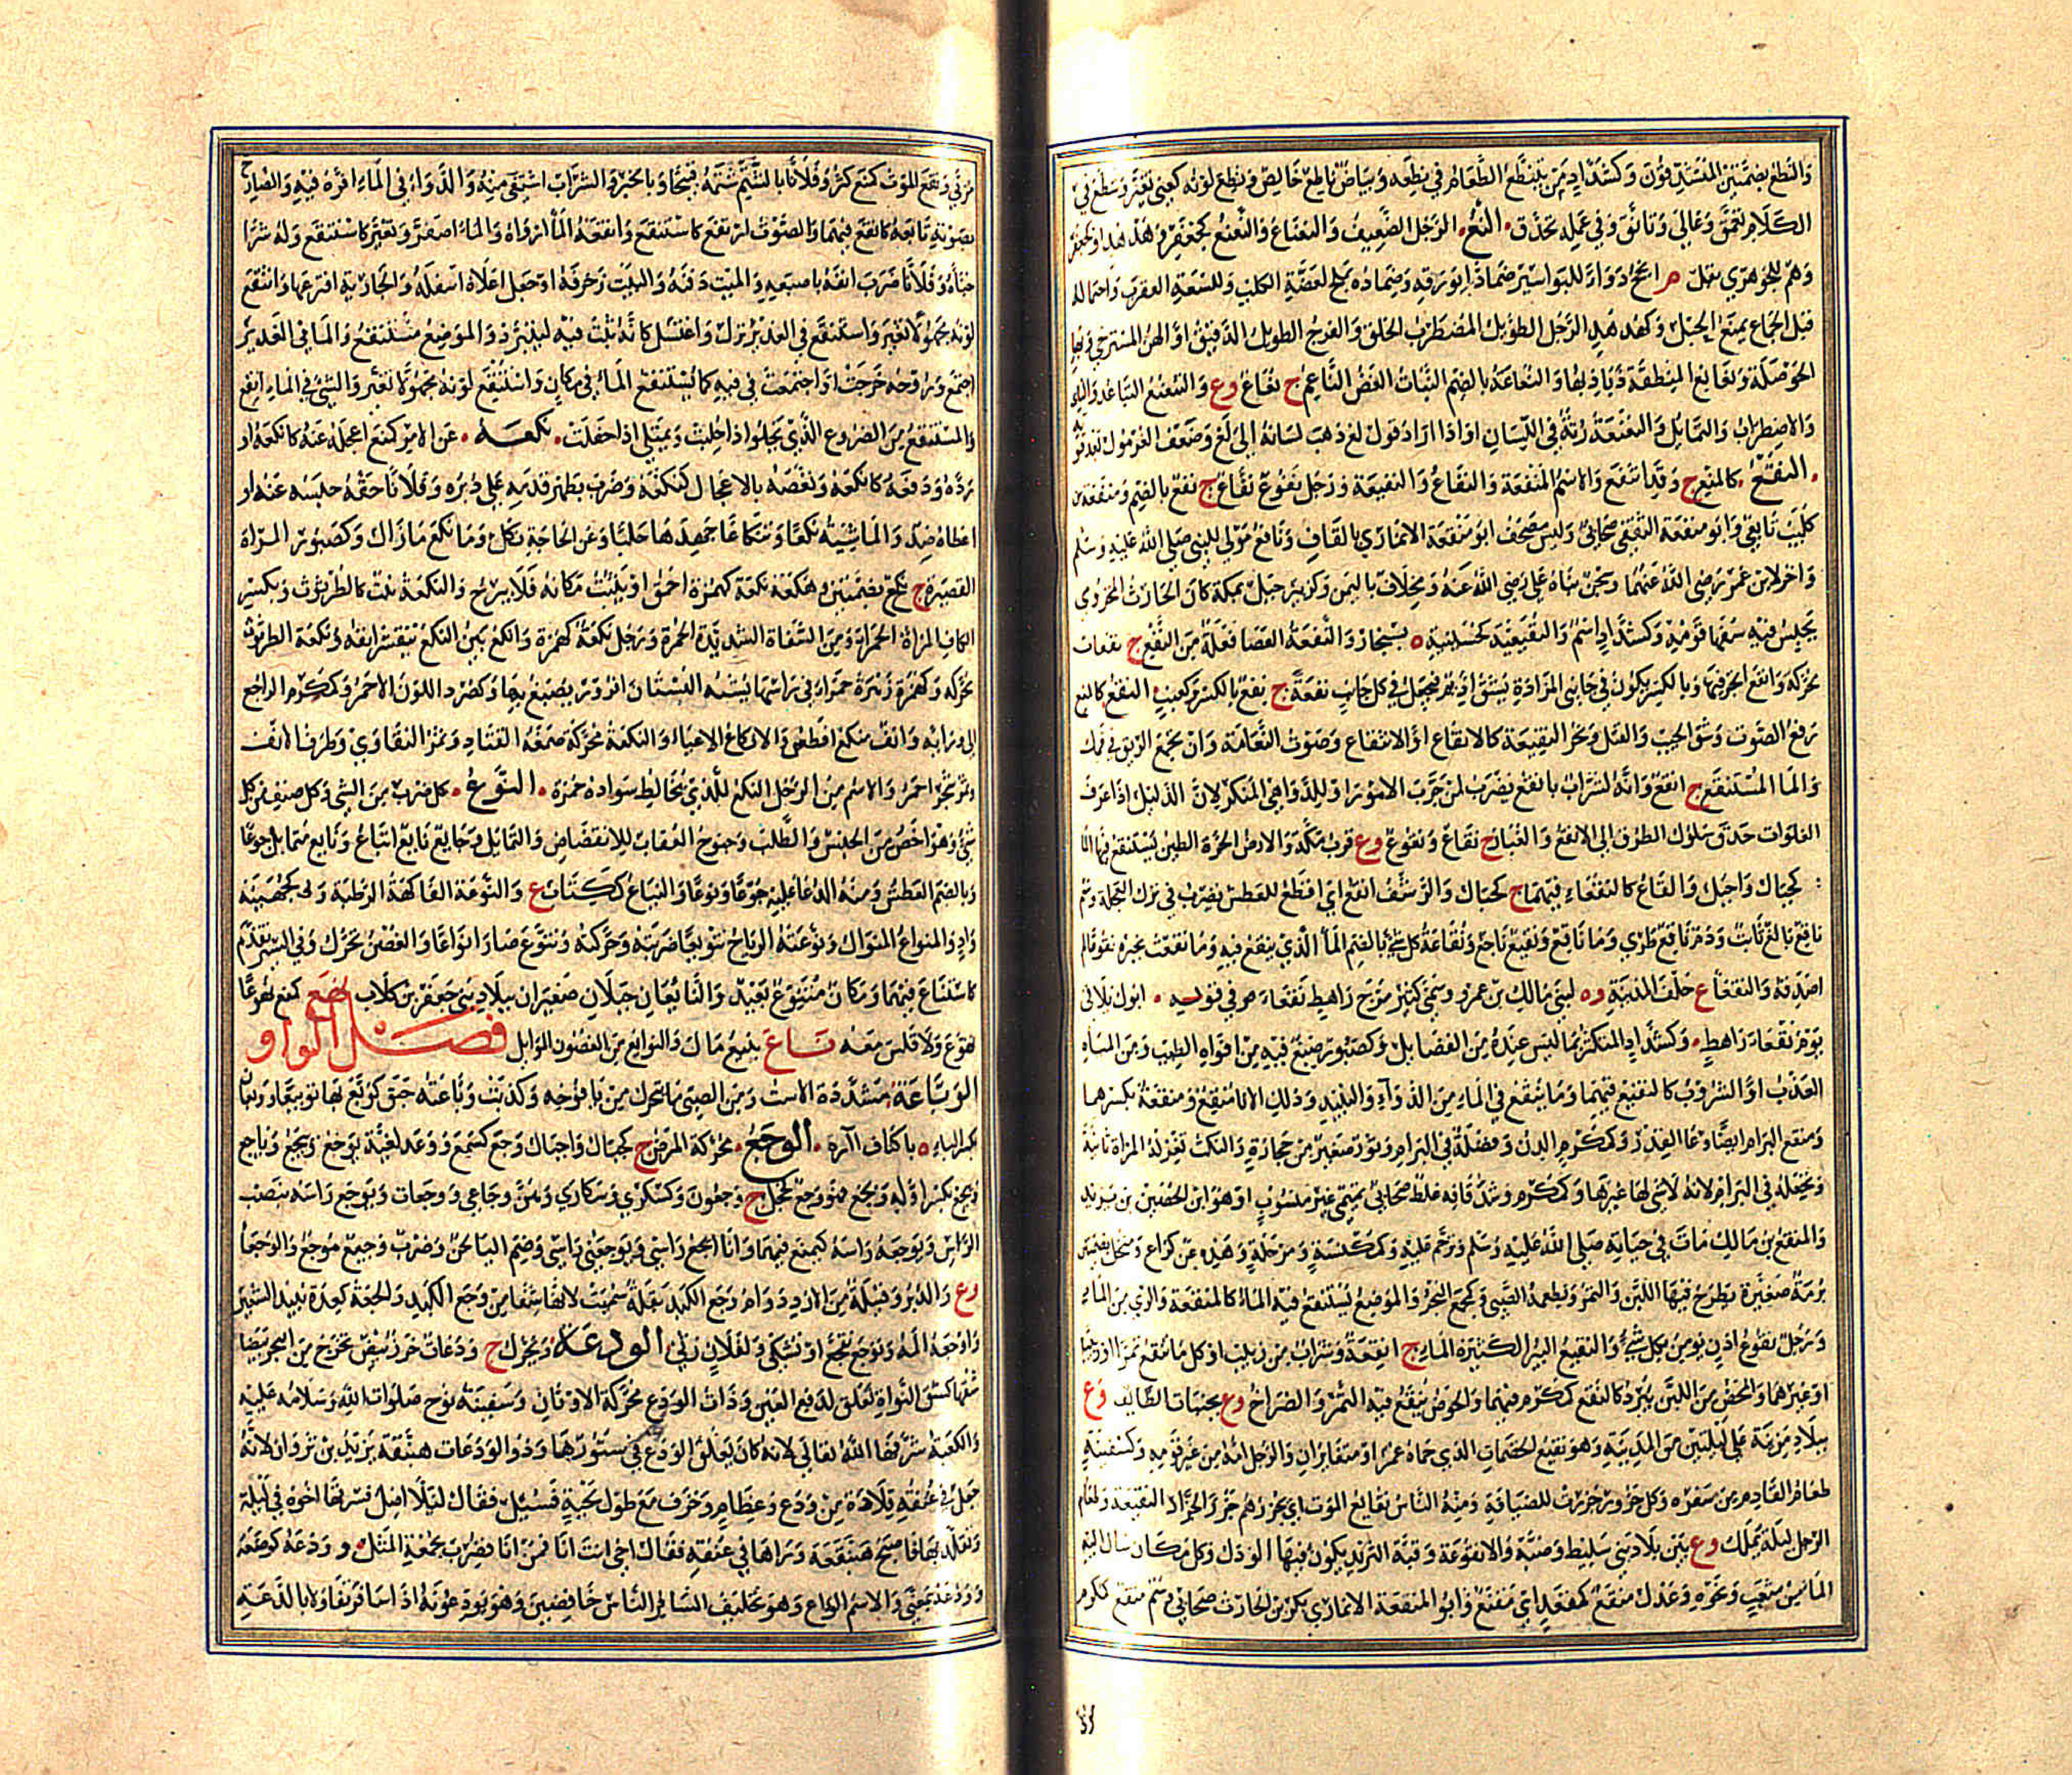 والنطع بضمتين المتشدقون وكشداد من يتنطع الطعام في نطعه وبياض ناطع خالص ونطع لونه كعني تغير وتنطع في
الكلام تعمق وغالى وتانق وفي عمله تحذق النع الرجل الضعيف والنعناع والنعنع كجعفر وهدهد او كجعفر
وهم للجوهري بقل م انجع دواء للبواسير ضمادا بورقه وضماده بملح لعضة الكلب وللسعة العقرب واحتماله
قبل الجماع يمنع الحبل وكهدهد الرجل الطويل المضطرب الخلق والفرج الطويل الدقيق او الهن المسترخي وبهاء
الحوصلة ونعانع المنطقة ذباذبها والنعاعة بالضم النبات الغض الناعم ج نعاع وع والتنعنع التباعد والناي
والاضطراب والتمايل والنعنعة رتة في اللسان او اذا اراد قول لع ذهب لسانه الى نع وضعف الغرمول بعد قوته
النفع كالمنع ج وقد انتفع والاسم المنفعة والنفاع والنفيعة ورجل نفوع نفاع ج نفع بالضم ومنفعة بن
كليب تابعي وابو منفعة الثقفي صحابي وليس مصحف ابو منقعة الانماري بالقاف ونافع مولى للنبي صلى الله عليه وسلم
واخر لابن عمر رضي الله عنهما وسجن بناه علي رضي الله عنه ومخلاف باليمن وكزبير جبل بمكة كان الحارث المخزومي
يحبس فيه سفهاء قومه وكشداد اسم والنفيعية كحسينية ة بسنجار والنفعة العصا فعلة من النفع ج نفعات
محركة وانفع اتجر فيها وبالكسر يكون في جانبي المزادة يشق اديم فيجعل في كل جانب نفعة ج نفع بالكسر وكعنب النقع كالمنع
رفع الصوت وشق الجيب والقتل ونحر النقيعة كالانقاع او الانتقاع وصوت النعامة وان تجمع الريق في فمك
والماء المستنقع ج انقع وانه لشراب بانقع يضرب لمن جرب الامور او للداهي المنكر لان الدليل اذا عرف
الفلوات حذق سلوك الطرق الى الانقع والغبار ج نقاع ونقوع وع قرب مكة والارض الحرة الطين يستنقع فيها الماء
كجبال واجبل والقاع كالنقعاء فيهما ج كجبال والرشف انقع اي اقطع للعطش يضرب في ترك العجلة وسم
ناقع بالغ ثابت ودم ناقع طري وما ناقع ونقيع ناجع ونقاعة كل شي بالضم الماء الذي ينقع فيه وما نقعت بخبره نقوعا لم
اصدقه والنقعاء ع خلف المدينة وة لبني مالك بن عمرو وسمى كثير مرج راهط نقعاء م في قوله ابوك تلاقى
يوم نقعاء راهط وكشداد المتكثر بما ليس عنده من الفضايل وكصبور صبغ فيه من افواه الطيب ومن المياه
العذب او الشروب كالنقيع فيهما وما ينقع في الماء من الدواء والنبيذ وذلك الاناء منقع ومنقعة بكسرهما
ومنقع البرام ايضا وعاء القدر وكمكرم الدن وفضلة في البرام وتور صغير من حجارة والنكث تغزله المراة ثانية
وتجعله في البرام لانه لا شي لها غيرها وكمكرم وشد قافه غلط صحابي تميمي غير منسوب او هو ابن الحصين بن يزيد
والمنقع بن مالك مات في حياته صلى الله عليه وسلم وترحم عليه وكمكنسة ومرحلة وهذه عن كراع ومنخل بضمتين
برمة صغيرة يطرح فيها اللبن والتمر ويطعمه الصبي وكمجمع البحر والموضع يستنقع فيه الماء كالمنقعة والري من الماء
ورجل نقوع اذن يومن بكل شي والنقيع البئر الكثيرة الماء ج انقعة وشراب من زبيب او كل ما ينقع تمرا او زبيبا
او غيرهما والمحض من اللبن يبرد كالنقع كمكرم فيهما والحوض ينقع فيه التمر والصراخ وع بجنبات الطايف وع
ببلاد مزينة على ليلتين من المدينة وهو نقيع الخضمات الذي حماه عمر او متغايران والرجل امه من غير قومه وكسفينة
طعام القادم من سفره وكل جزور جزرت للضيافة ومنه الناس نقايع الموت اي يجزرهم جزر الجزار النقيعة وطعام
الرجل ليلة يملك وع بين بلاد بني سليط وضبة والانقوعة وقبة الثريد يكون فيها الودك وكل مكان سال اليه
الماء من مثعب ونحوه وعدل منقع كمقعد اي مقنع وابو المنقعة الانماري بكر بن الحارث صحابي وسم منقع كمكرم
مربى ونقع الموت كمنع كثر وفلانا بالشتم شتمه قبيحا وبالخبر والشراب اشتفى منه والدواء في الماء اقره فيه والصارخ
بصوته تابعه كانقع فيهما والصوت ارتفع كاستنقع وانقعه الماء ارواه والماء اصفر وتغير كاستنقع وله شرا
خباه وفلانا ضرب انفه باصبعيه والميت دفنه والبيت زخرفه او جعل اعلاه اسفله والجارية افترعها وانتقع
لونه مجهولا تغير واستنقع في الغدير نزل واغتسل كانه ثبت فيه ليتبرد والموضع مستنقع والماء في الغدير
اجتمع وروحه خرجت او اجتمعت في فيه كما يستنقع الماء في مكان واستنقع لونه مجهولا تغير والشي في الماء انقع
والمستنقع من الضروع الذي يخلو اذا حلبت ويمتلي اذا حفلت نكعه عن الامر كمنع اعجله عنه كانكعه او
رده ودفعه كانكعه ونغصه بالاعجال كنكفه وضرب بظهر قدمه على دبره وفلانا حقه حبسه عنه او
اعطاه ضد والماشية نكعا وتنكاعا جهدها حلبا وعن الحاجة نكل وما نكع مازال وكصبور المراة
القصيرة ج نكع بضمتين وهكعة نكعة كهمزة احمق او يلبث مكانه فلا يبرح والنكعة نبت كالطرثوث وبكسر
الكاف المراة الحمراء ومن الشفاة الشديدة الحمرة ورجل نكعة كهمزة وانكع بين النكع يتقشر انفه ونكعة الطرثوث
محركة وكهمزة زهرة حمراء في راسها يشبه البستان افروز يصبغ بها وكصرد اللون الاحمر وكمكرم الراجع
الى ورائه وانف منكع افطس والانكاع الاعياء والنكعة محركة صمغة القتاد وثمر النقاوى وطرف الانف
وثمر شجر احمر والاسم من الرجل النكع للذي يخالط سواده حمرة النوع كل ضرب من الشي وكل صنف من كل
شي وهو اخص من الجنس والطلب وجنوح العقاب للانقضاض والتمايل وجائع نائع اتباع ونائع متمايل جوعا
وبالضم العطش ومنه الدعاء عليه جوعا ونوعا والنياع ككتاب ع والنوعة الفاكهة الرطبة وكجهينة
واد والمنواع المنوال ونوعته الرياح تنويعا ضربته وحركته وتنوع صار انواعا والغصن تحرك وفي السير تقدم
كاستناع فيهما ومكان متنوع بعيد والنايعان جبلان صغيران ببلاد بني جعفر بن كلاب نهع كمنع نهوعا
تهوع ولا قلس معه ناع ينيع مال والنوايع من الغصون الموايل فصل الواو
الوباعة مشددة الاست ومن الصبي ما يتحرك من يافوخه وكذبت وباعته حبق كوبع بها توبيعا ووبعان
بكسر الباء ة باكناف آرة الوجع محركة المرض ج كجبال واجبال وجع كسمع ووعد لغية يوجع وييجع وياجع
وييجع بكسر اوله ويجع فهو وجع كخجل ج وجعون وكسكرى وسكارى وهن وجاعى ووجعات ويوجع راسه بنصب
الراس ويوجعه راسه كيمنع فيهما وانا ايجع راسي ويوجعني راسي وضم الياء لحن وضرب وجيع موجع والوجعاء
وع والدبر وقبيلة من الازد ودواء وجع الكبد بقلة سميت لانها شفاء من وجع الكبد والجعة كعدة نبيذ الشعير
واوجعه المه وتوجع تفجع او تشكى ولفلان رثى الودعة ويحرك ج ودعات خرز بيض تخرج من البحر بيضاء
شقها كشق النواة تعلق لدفع العين وذات الودع محركة الاوثان وسفينة نوح صلوات الله وسلامه عليه
والكعبة شرفها الله تعالى لانه كان يعلق الودع في ستورها وذو الودعات هبنقة يزيد بن ثروان لانه
جعل في عنقه قلادة من ودع وعظام وخزف مع طول لحيته فسئل فقال لئلا اضل فسرقها اخوه في ليلة
وتقلد بها فاصبح هبنقة وراها في عنقه فقال اخي انت انا فمن انا يضرب بحمقه المثل وودعه كوضعه
وودعه بمعنى والاسم الوداع وهو تخليف المسافر الناس خافضين وهو يودعونه اذا سافر تفاولا بالدعة